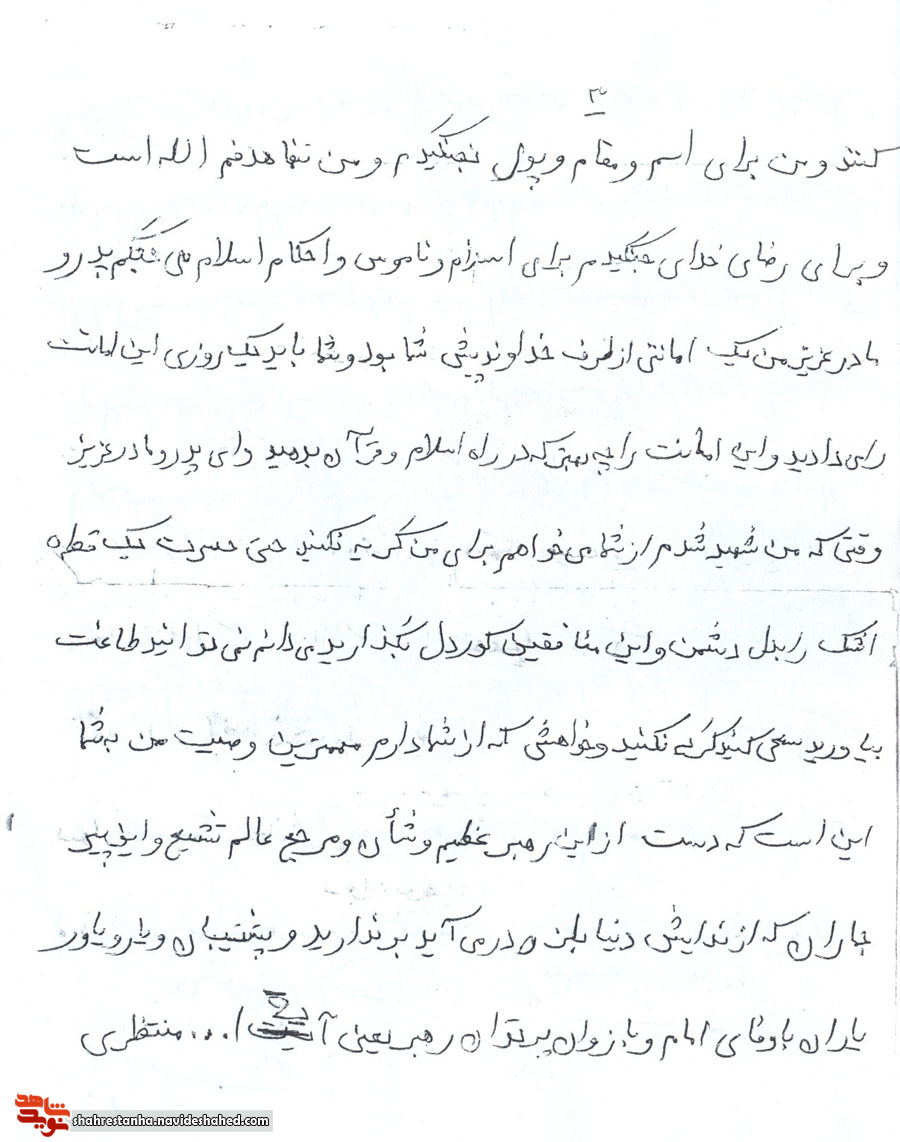 ۳
کنند و من برای اسم و مقام و پول نجنگیدم و من تنها هدفم الله است
و برای رضای خدای جنگیدم برای اسلام و ناموس و احکام اسلام می جنگم پدر و
مادر عزیز من یک امانتی از طرف خداوند پیش شما بود و شما باید یک روزی این امانت
رامی دادید و این امانت را چه بهتر که در راه اسلام و قرآن بدهید وای پدر و مادر عزیز
وقتی که من شهید شدم از شما می خواهم برای من گریه نکنید حتی حسرت یک قطره
اشک را بدل دشمن و این منافقین کوردل بگذارید می دانم نمی توانید طاعت
بیاورید سعی کنید گریه نکنید و خواهشی که از شما دارم مهمترین وصیت من به شما
این است که دست از این رهبر عظیم و شأن و مرجع عالم تشیع و این پیر
جماران که از ندایش دنیا بلرزه در می آید برندارید و پشتیبان و یار و یاور
یاران باوفای امام و بازوان پرتوان رهبر یعنی آیت ا... منتظری
نوید شاهد
shahrestanha.navideshahed.com